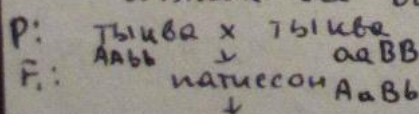 P: тыква х тыква
AAbb ↓ aaBB
F₁: патиссон AaBb
↓